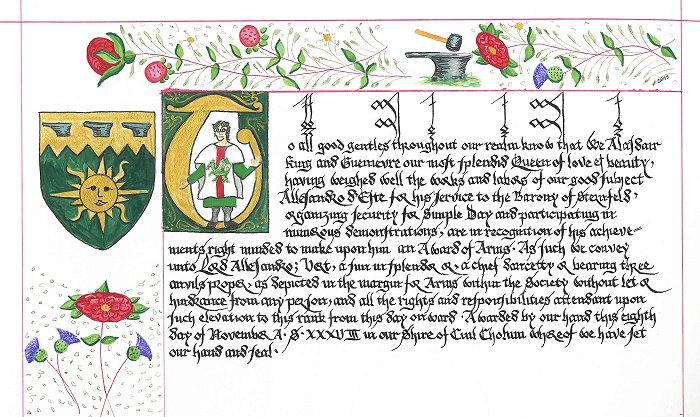 To all good gentles throughout our realm know that We Alasdair
King and Guenievre our most splendid Queen of love & beauty,
having weighed well the works and labors of our good subject
Allejandro d'Este for his service to the Barony of Sternfeld,
organizing security for Simple Day and participating in
numerous demonstrations, are in recognition of his achieve-
ments right minded to make upon him an Award of Arms. As such we convey
unto Lord Allejandro; Vert, a sun in splendor or, a chief dancetty or bearing three
anvils proper, as depicted in the margin for Arms within the Society without let or
hindrance from any person, and all the rights and responsibilities attendant upon
such elevation to this rank from this day onward. Awarded by our hand this eighth
day of November A. S. XXXVIII in our Shire of Cuil Cholum whereof we have set
our hand and seal.